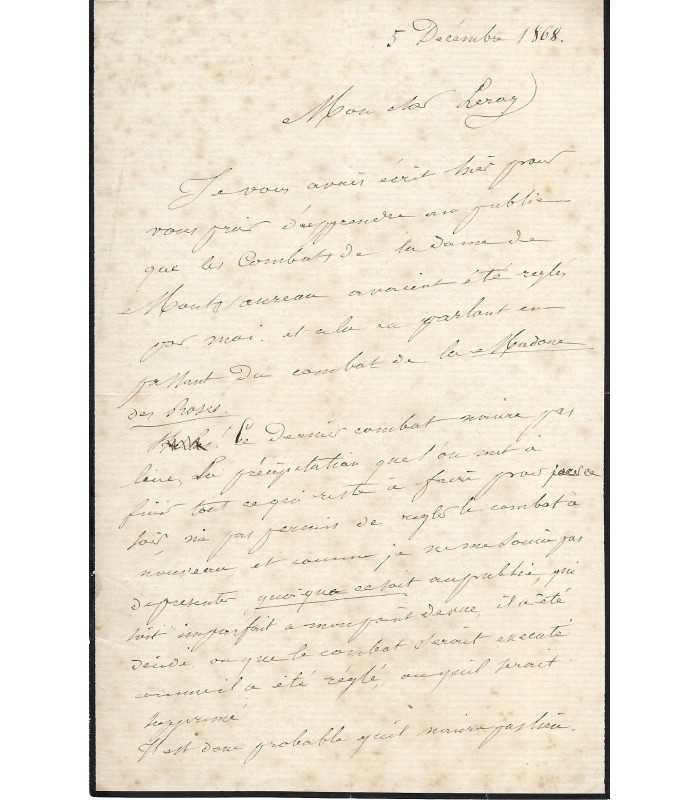 5 Décembre 1868.
Mon cher Leroy
Je vous avais écrit hier pour
vous prier d'apprendre au public
que les Combats de la dame de
Montsoreau avaient été reglés
par moi. et cela en parlant en
passant du combat de la Madone
des Roses.
! Ce Dernier combat n'aura pas
lieu, La précipitation que l'on met à
finir tout ce qui reste à faire pour jouer ce
soir n'a pas permis de regler le combat à
nouveau et comme je ne me soucie pas
de presenter quoique ce soit au public, qui
soit imparfait a mon point de vue, il a été
décidé ou que le combat serait executé
comme il a été réglé, ou qu'il serait
supprimé
Il est donc probable qu'il n'aura pas lieu.